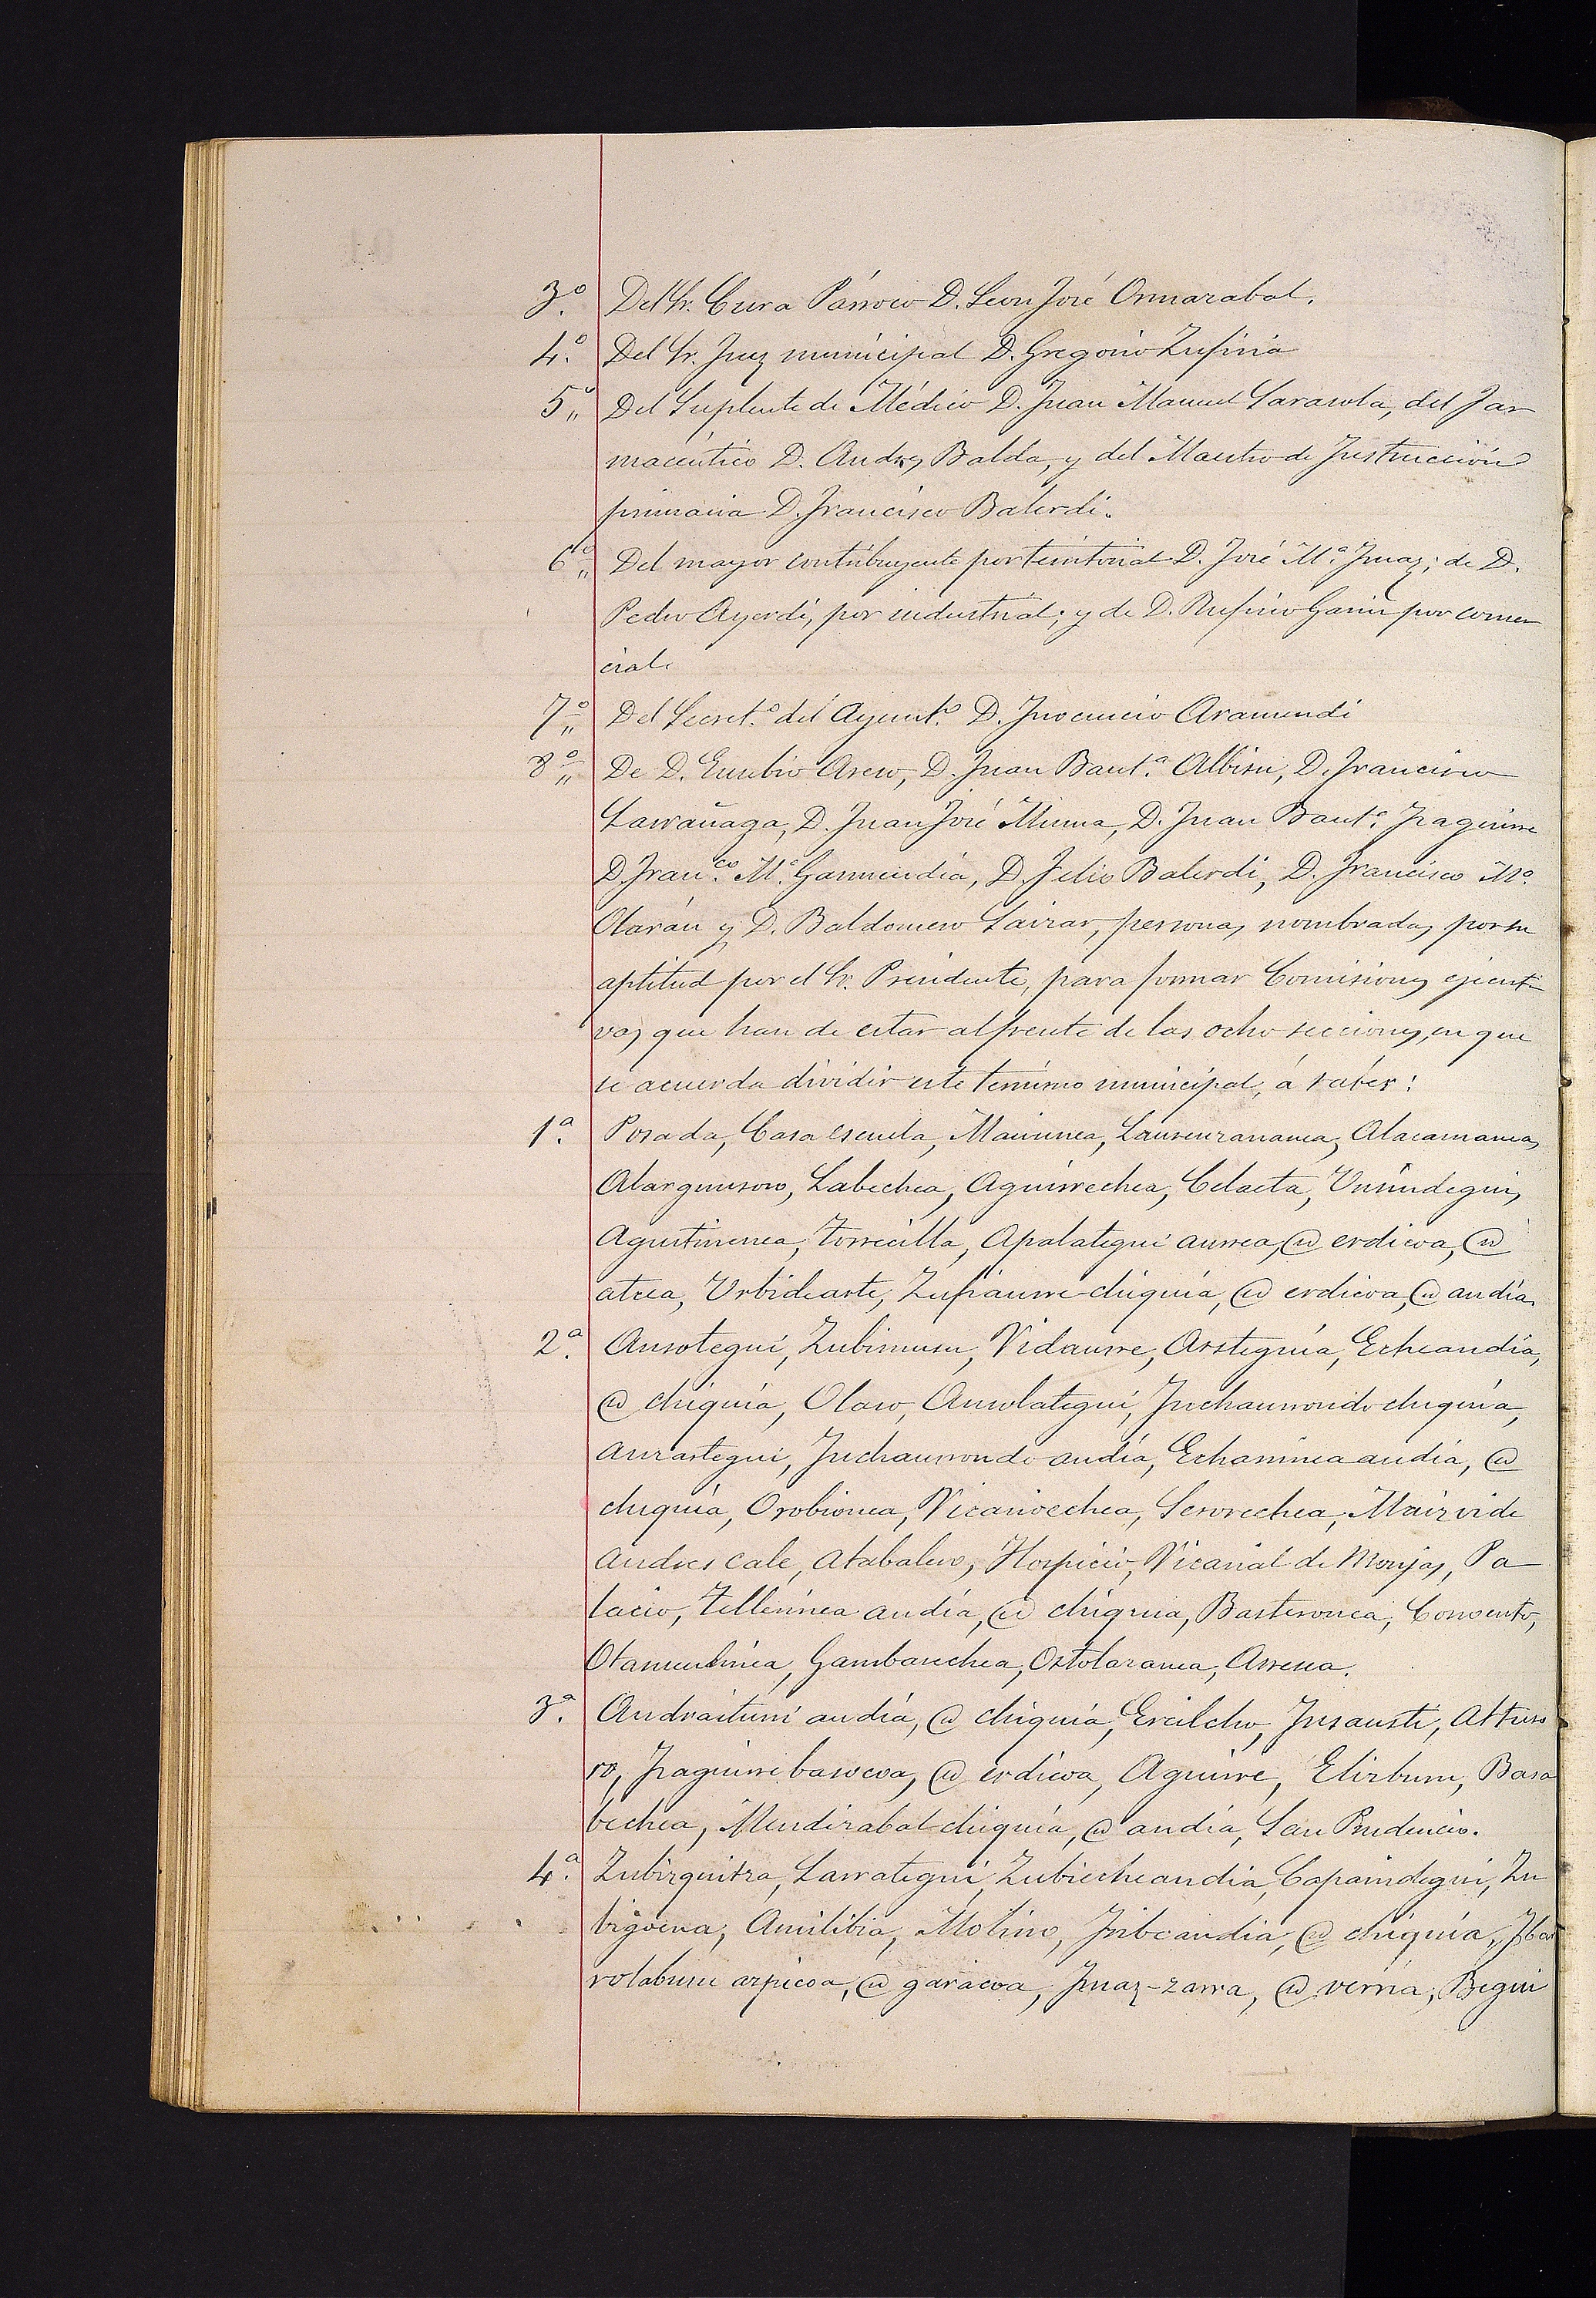 3.º Del Sr. Cura Párroco D. Leon José Ormazabal.
4.º Del Sr. Juez municipal D. Gregorio Zufiria
5.º Del Suplente de Médico D. Juan Manuel Sarasola, del Far
maceútico D. Andres Balda, y del Maestro de Instruccion
primaria D. Francisco Balerdi.
6.º Del mayor contribuyente por territorial D. José M.ª Imaz; de D.
Pedro Ayerdi, por industrial; y de D. Rufino Garin por comer
cial.
7.º Del Secret.º del Ayunt.º D. Inocencio Aramendi
8.º De D. Eusebio Areso, D. Juan Baut.ª Albisu, D. Francisco
Larrañaga, D. Juan José Munoa, D. Juan Baut.ª Izaguirre
D. Fran.co M.ª Garmendia, D. Felis Balerdi, D. Francisco M.ª
Olarán y D. Baldomero Saizar, personas nombradas por su
aptitud por el Sr. Presidente, para formar Comisiones ejecuti
vas que han de estar al frente de las ocho secciones, en que
se acuerda dividir este termino municipal, á saber:
1.ª Posada, Casa escuela, Maiunea, Lausenzananea, Alacamanea,
Alargunsoro, Labechea, Aguirrechea, Celaeta, Ursundegui,
Agustinenea, Torrecilla, Apalategui aurrea, @ erdicoa, @
atcea, Urbidearte, Zufiaurre-chiquia, @ erdicoa, @ andia.
2.ª Ausotegui, Zubimusu, Vidaurre, Arsteguia, Echeandia,
@ chiquia, Olaso, Ausolategui, Inchaurrondo chiquia,
Aurastegui, Inchaurrondo andia, Echaninea andia, @
chiquia, Orobionea, Vicarioechea, Serorechea, Maizvide
Andres cale, Atabalero, Hospicio, Vicarial de Monjas, Pa
lacio, Tellerinea andia, @ chiquia, Basteronea, Convento,
Otamendinea, Gambarechea, Ostolazanea, Arresea.
3.ª Andraituni andia, @ chiquia, Ercilcho, Insausti, Altuso
ro, Izaguirre basocoa, @ erdicoa, Aguirre, Elizburu, Basa
bechea, Mendizabal chiquia, @ andia, San Prudencio.
4.ª Zubizquitza, Larrategui, Zubiecheandia, Capaindegui, Zu
bigoena, Amilibia, Molino, Iribeandia, @ chiquia, Ibar
rolaburu azpicoa, @ garaicoa, Imaz-zarra, @ verria, Begui